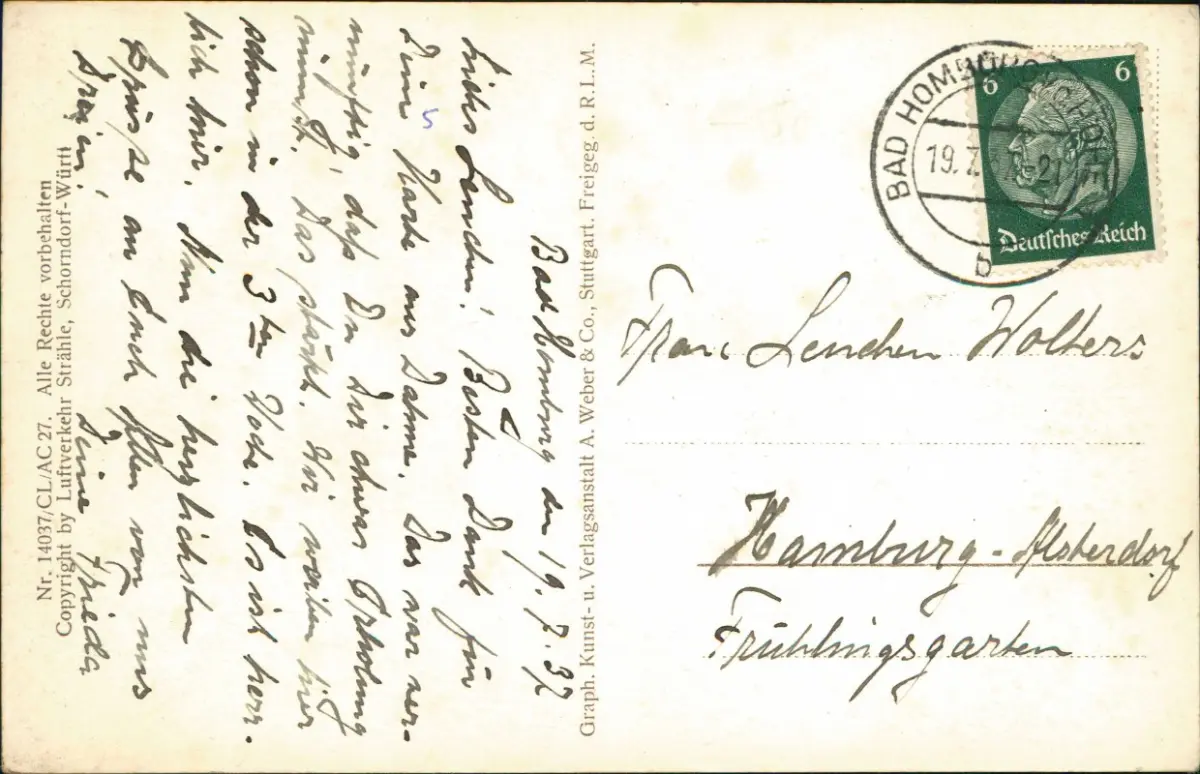 Bad Homburg den 19.7.37
Liebes Lenchen! Besten Dank für
Deine Karte aus Dahme. Das war ver-
nünftig, daß Du Dir etwas Erholung
nimmst. Das stärkt. Wir weilen hier
schon in der 3ten Woche. Es ist herr-
lich hier. Nun die herzlichsten
Grüsse an Euch von uns
Dreien!
Deine Frieda
Nr. 14037/CL/AC 27. Alle Rechte vorbehalten
Copyright by Luftverkehr Strähle, Schorndorf-Württ
Graph. Kunst- u. Verlagsanstalt A. Weber & Co., Stuttgart. Freigeg. d. R. L. M.
BAD HOMBURG
19.7.
b
6 6
Deutsches Reich
Frau Lenchen Wolters
Hamburg-Alsterdorf
Frühlingsgarten